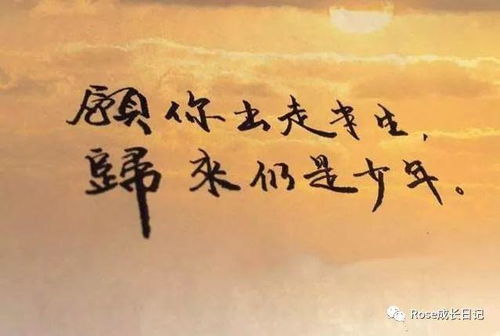 願你出走半生，
歸來仍是少年。
Rose成长日记